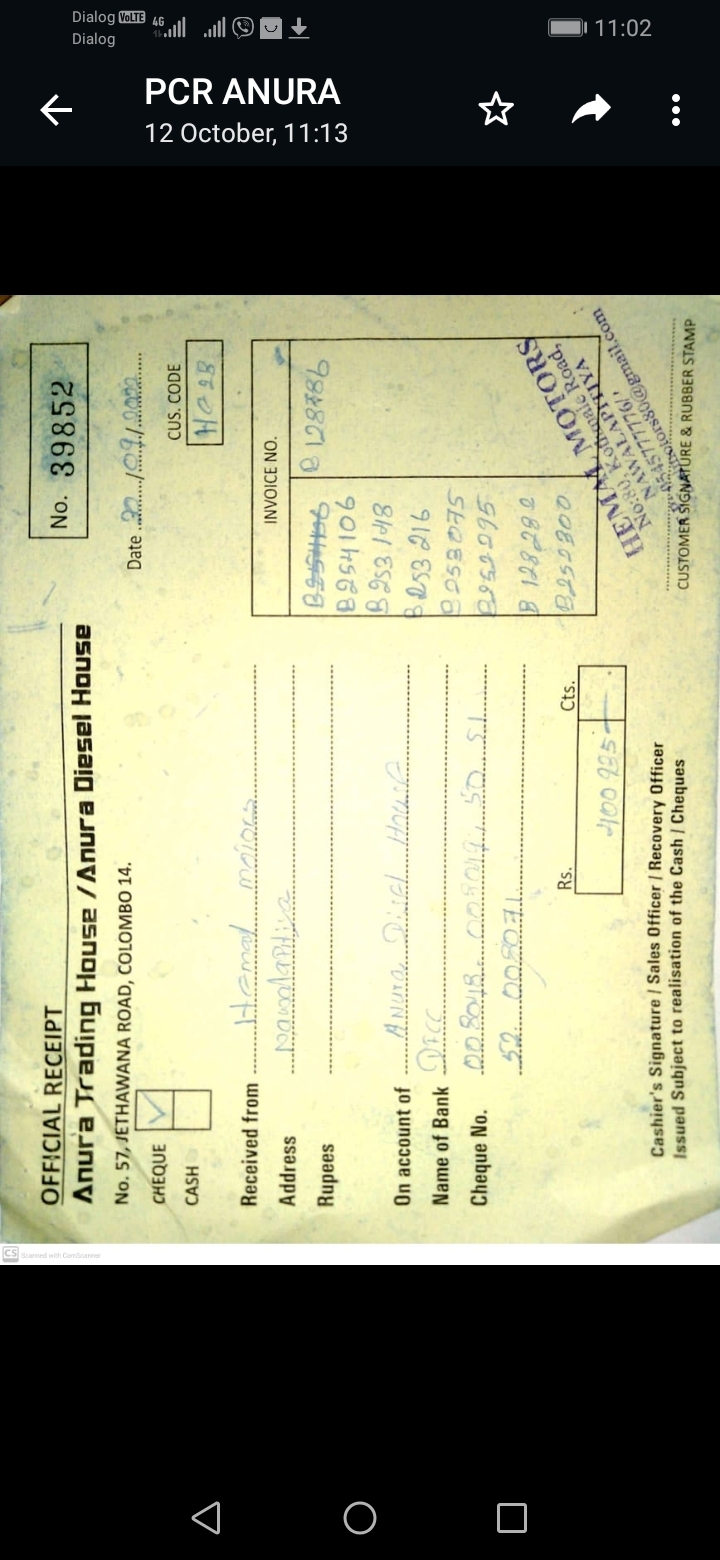 Dialog VoLTE 4G 11:02
Dialog
PCR ANURA
12 October, 11:13
OFFICIAL RECEIPT
No. 39852
Anura Trading House / Anura Diesel House
No. 57, JETHAWANA ROAD, COLOMBO 14.
Date 30/09/2020
CHEQUE
CUS. CODE
CASH
Received from Hemal motors
INVOICE NO.
Address Nawalapitiya
B 128786
Rupees
B254106
B253148
On account of Anura Disel House
B253216
Name of Bank
B253075
Cheque No. 008048. 008049, 50 51
B252295
52 008071
B 128282
B252300
Rs. Cts.
400935
HEMAL MOTORS
No:80, Kothmale Road,
NAWALAPITIYA
Cashier's Signature / Sales Officer / Recovery Officer
CUSTOMER SIGNATURE & RUBBER STAMP
Issued Subject to realisation of the Cash / Cheques
CS Scanned with CamScanner